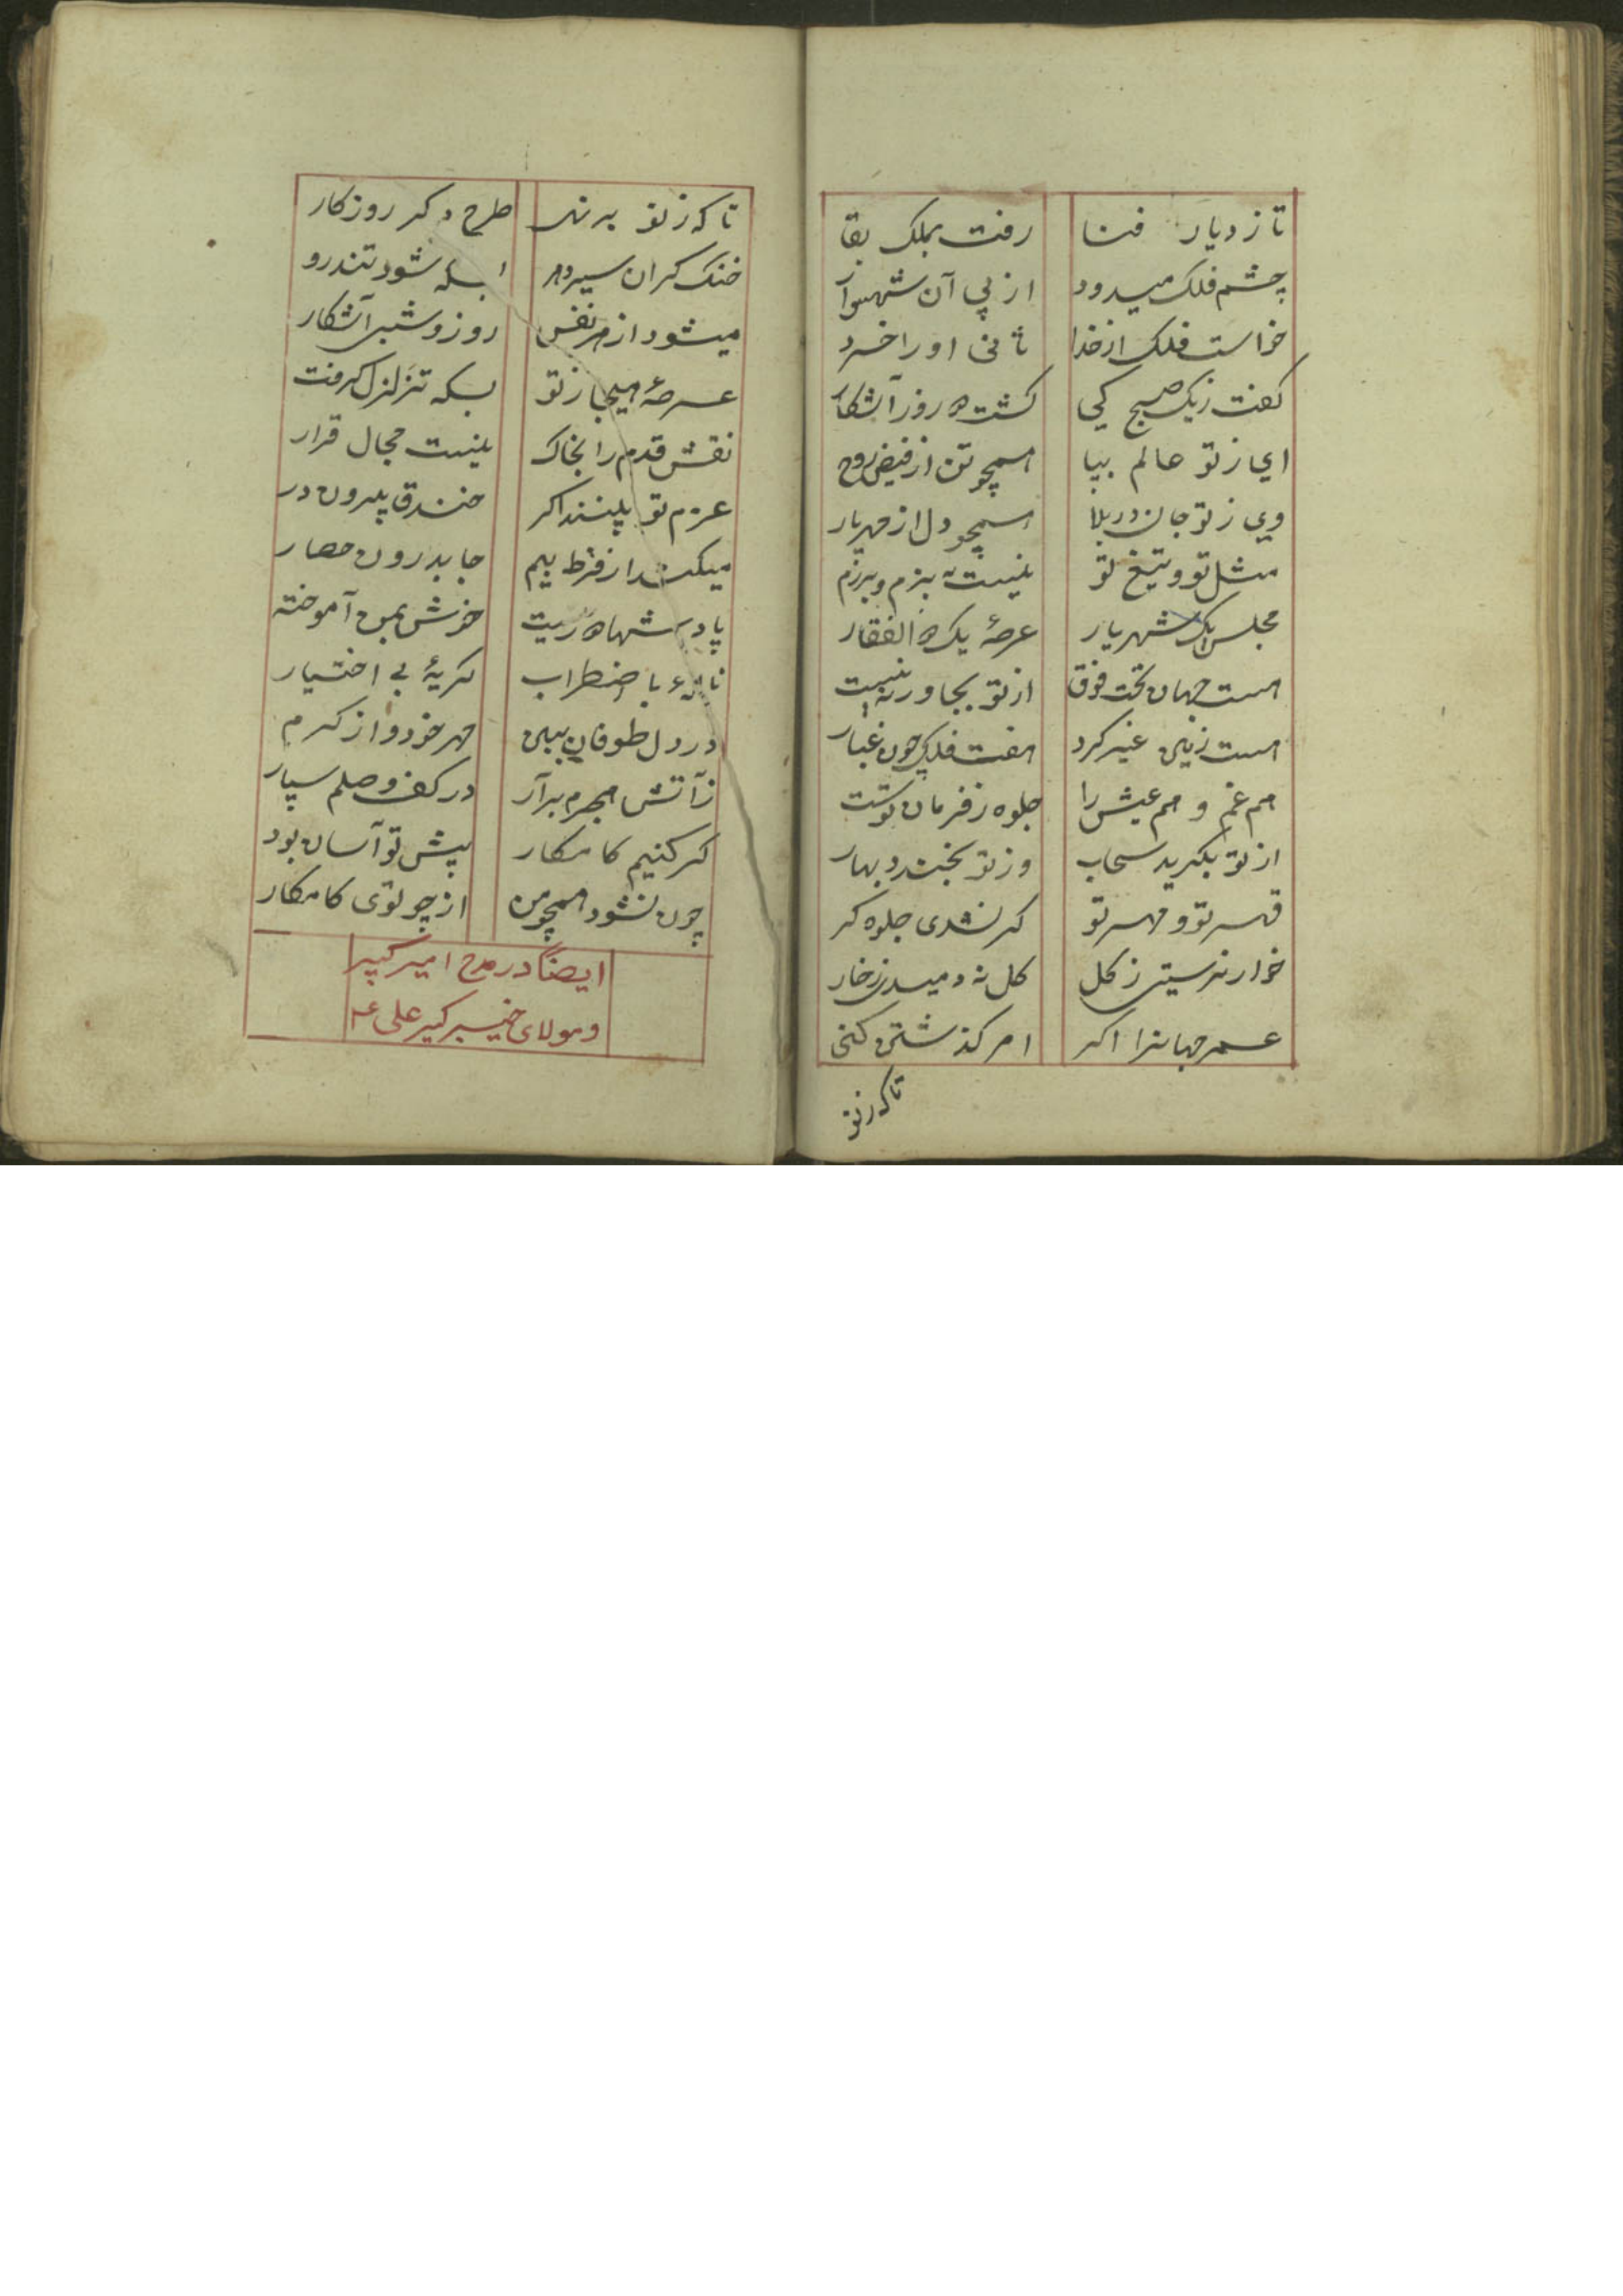 تا ز دیار فنا رفت بملک بقا
چشم فلک میدود از پی آن شهسوار
خواست فلک از خدا ثانی او را خرد
کفت ز یک صبح کی کشت دو روز آشکار
ای ز تو عالم بپا همچو تن از فیض روح
وی ز تو جان در بلا همچو دل از مهر یار
مثل تو و تیغ تو نیست به بزم و برزم
مجلس یک شهریار عرصهٔ یک ذوالفقار
هست جهان تحت فوق از تو بجا ور نیست
هست زمین غیر کرد هفت فلک چون غبار
هم غم و هم عیش را جلوه ز فرمان تست
از تو بکرید سحاب وز تو بخندد بهار
قهر تو و مهر تو کر نشدی جلوه کر
خوار نرستی ز کل کل نه دمیدی ز خار
عمر جهانرا اکر امر کذشتن کنی
تا که ز تو
تا که ز تو برنهد طرح دکر روزکار
خنک کران سیر دهر بسکه شود تندرو
میشود از هر نفس روز و شبی آشکار
عرصهٔ هیجا ز تو بسکه تزلزل کرفت
نقش قدم را بخاک نیست مجال قرار
عزم تو بیند اکر خندق بیرون در
میکند از فرط بیم جا بدرون حصار
پادشها دوریت خوش بمن آموخته
نالهٔ با اضطراب کریهٔ بی اختیار
در دل طوفان ببین مهر خود و از کرم
ز آتش هجرم برآر در کف وصلم سپار
کر کنیم کامکار پیش تو آسان بود
چون نشود همچو من از چو توئی کامکار
ایضا در مدح امیر کبیر
و مولای خیبر کیر علی ع